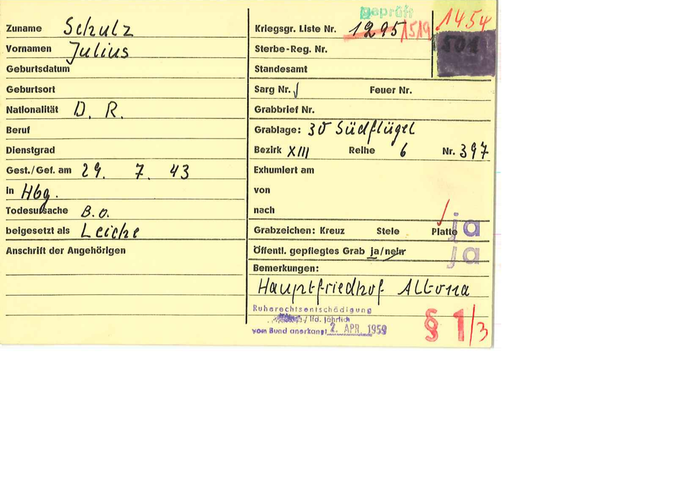 geprüft
1454
Zuname Schulz
Kriegsgr. Liste Nr. 1295
Vornamen Julius
Sterbe-Reg. Nr.
Geburtsdatum
Standesamt
Geburtsort
Sarg Nr. Feuer Nr.
Nationalität D. R.
Grabbrief Nr.
Beruf
Grablage: 30 Südflügel
Dienstgrad
Bezirk XIII Reihe 6 Nr. 397
Gest./Gef. am 29. 7. 43
Exhumiert am
in Hbg.
von
Todesursache B.o.
nach
beigesetzt als Leiche
Grabzeichen: Kreuz Stele Platte ja
Anschrift der Angehörigen
Öffentl. gepflegtes Grab ja/nein ja
Bemerkungen:
Hauptfriedhof Altona
Ruherechtsentschädigung
lfd. jährlich
vom Bund anerkannt 2. APR. 1959
§ 1/3